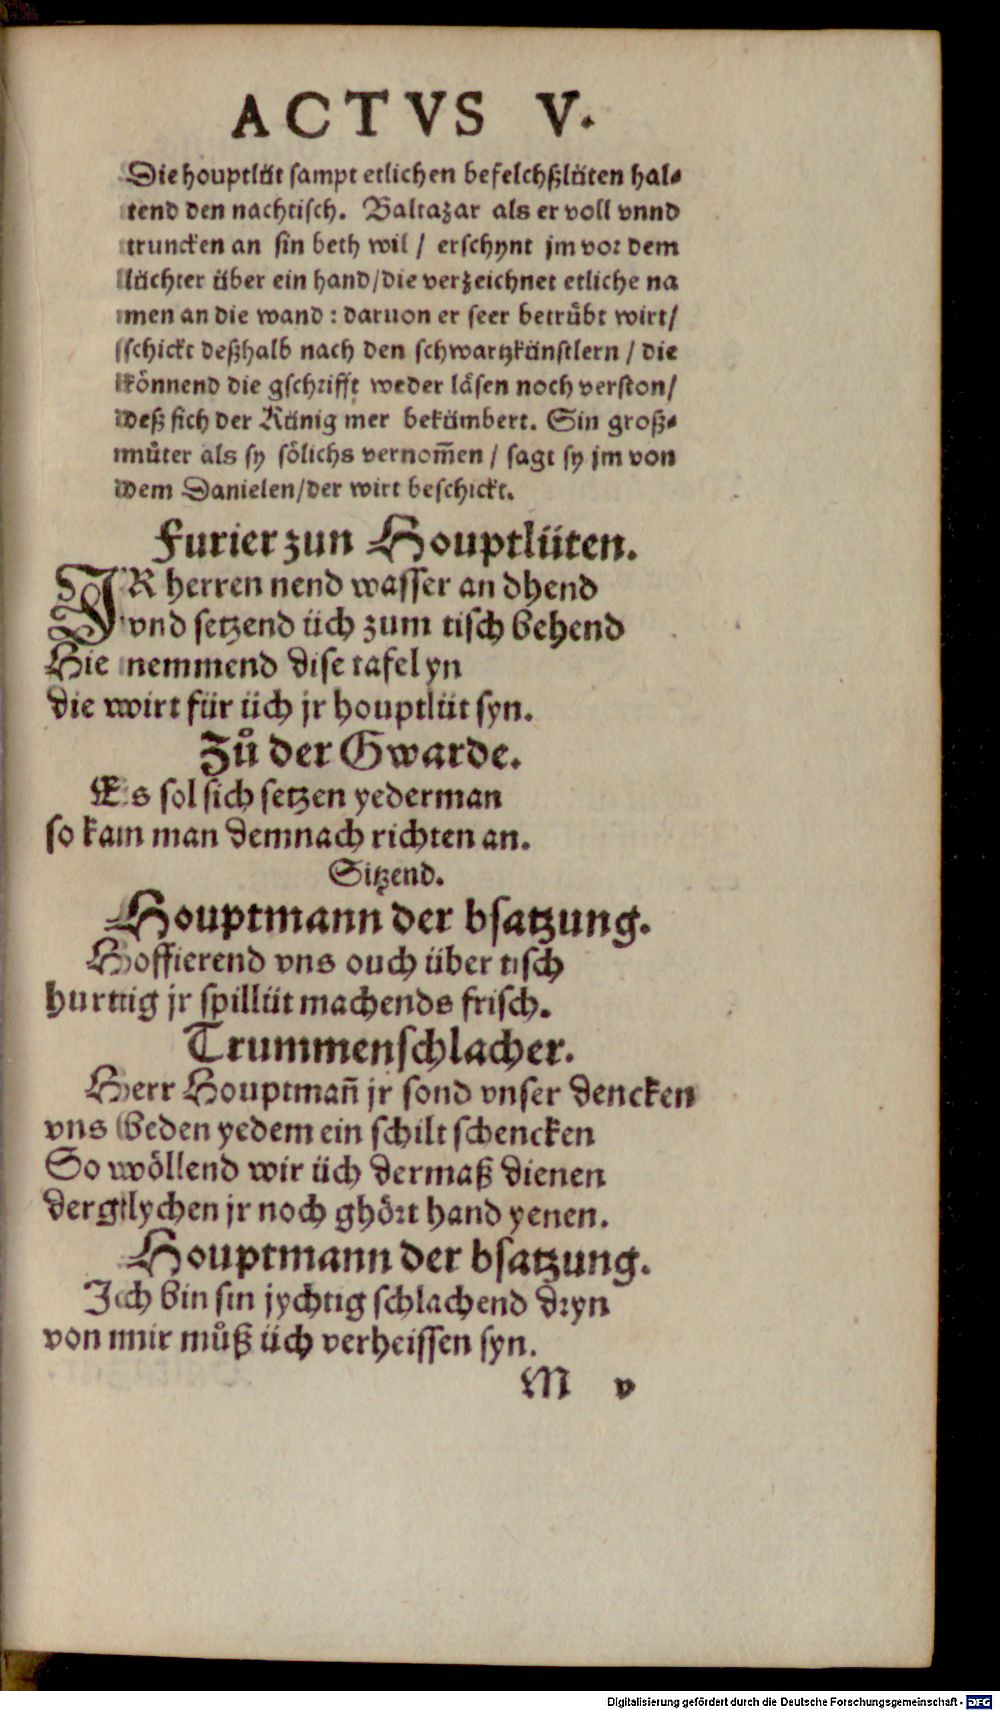 ACTVS V.
Die houptlüt sampt etlichen befelchßlüten hal⸗
tend den nachtisch. Baltazar als er voll vnnd
truncken an sin beth wil / erschynt jm vor dem
lüchter über ein hand/die verzeichnet etliche na
men an die wand : daruon er seer betrübt wirt/
schickt deßhalb nach den schwartzkünstlern / die
könnend die gschrifft weder läsen noch verston/
deß sich der Künig mer bekümbert. Sin groß⸗
můter als sy sölichs vernom̃en / sagt sy jm von
dem Danielen/der wirt beschickt.
Furier zun Houptlüten.
JR herren nend wasser an dhend
vnd setzend üch zum tisch behend
Hie nemmend dise tafel yn
die wirt für üch jr houptlüt syn.
Zů der Gwarde.
Es sol sich setzen yederman
so kam man demnach richten an.
Sitzend.
Houptmann der bsatzung.
Hoffierend vns ouch über tisch
hurttig jr spillüt machends frisch.
Trummenschlacher.
Herr Houptmañ jr sond vnser dencken
vns beden yedem ein schilt schencken
So wöllend wir üch dermaß dienen
dergtlychen jr noch ghört hand yenen.
Houptmann der bsatzung.
Jch bin sin jychtig schlachend dryn
von mir můß üch verheissen syn.
M v
Digitalisierung gefördert durch die Deutsche Forschungsgemeinschaft - DFG